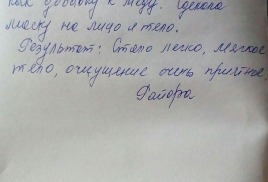 как добавку к меду. Сделала
маску на лицо и тело.
Результат: Стало легко, мягкое
тело, ощущение очень приятное.
Файора